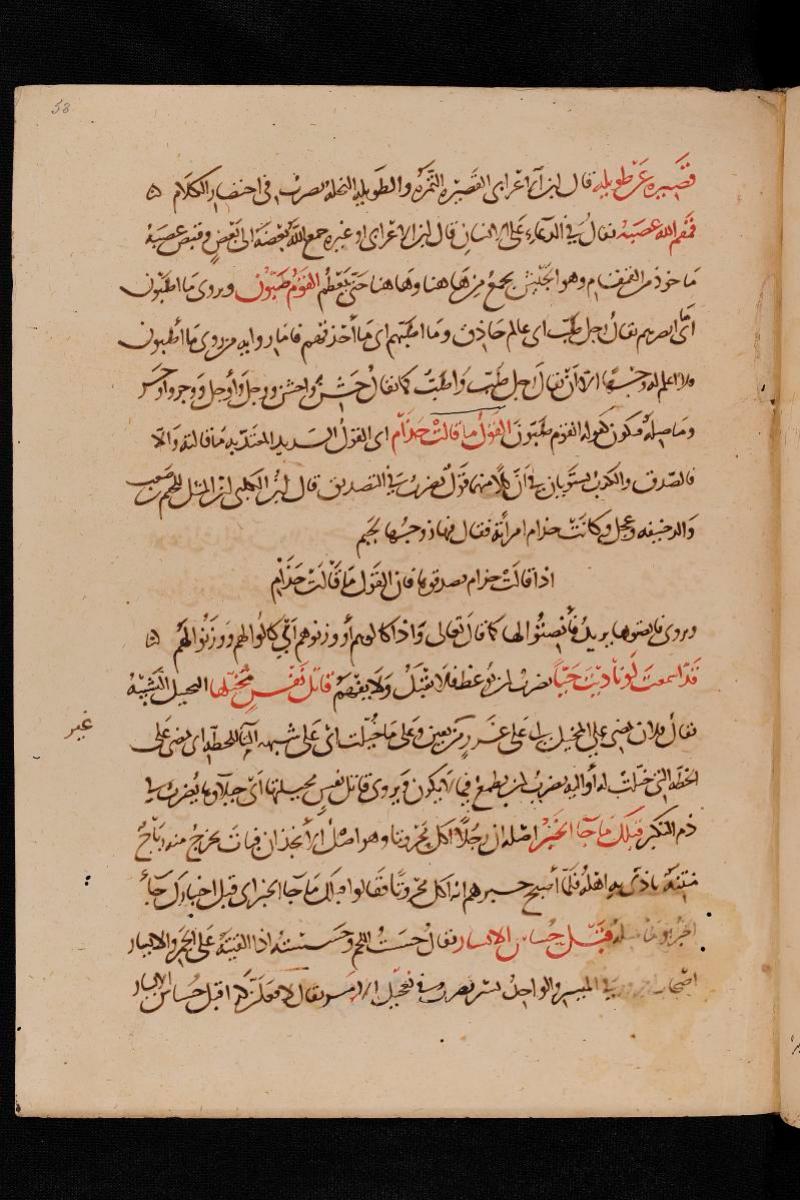 58
قَصِيرَة عَنْ طويله قال ابن الاعرابى القَصِيرَة التَّمْرَة والطويله النخلة يضرب في اختصار الكلام
قمقم الله عصبه يقال في الدعاء على الانسان قال ابن الاعرابى او غيره جمع الله بعضه الى بعض وقبض عصبه
ماخوذ من القمقام وهو الجيش يجمع من هاهنا وهاهنا حتى يعظم القوم طَبّون ويروى ما اطبّون
اى ابصرهم يقال رجل طَبّ اى عالم حاذق وما اطبّهم اى ما أحذقهم فاما رواية من روى ما أطبون
فلا اعلم له وجها الا أن يقال رجل طَبّ وأطبّ كما يقال خَشِن واخشن ووجل وأوجل ووجر وأوجر
وما صلة فيكون كقوله القوم طبّون القول ما قالت حذام اى القول السديد المعتد به ما قالته والا
فالصدق والكذب يستويان في أنّ كلا منهما قول يضرب في التصديق قال ابن الكلبى ان المثل للجيم بن صعب
والد حنيفة وعجل وكانت حذام امرأته فقال فيها زوجها لجيم
اذا قالت حذام فصدقوها فان القول ما قالت حذام
ويروى فانصتوها يريد فأنصتوا لها كما قال تعالى واذا كالوهم أو وزنوهم اى كالوا لهم ووزنوا لهم
قد اسمعت لو ناديت حيّاً يضرب لمن يوعظ فلا يقبل ولا يفهم قاتل نفس مخيّلها التخييل التشبيه
يقال فلان يمضى على المخيّل اى على غرر من غير يقين وعلى ما خيّلت اى على شبهه التاء للخطة اى يمضى على
غير
الخطة التي خيّلت له أو اليه يضرب لمن يطمع فيما لا يكون ويروى قاتل نفس مخيلتها اى خيلاؤها يضرب في
ذم التكبر قبلك ما جا الخبر اصله ان رجلا اكل محروتا وهو اصل الأنجذان فبات تخرج منه رياح
منتنة فتأذى به اهله فلما أصبح خبرهم انه اكل محروتا فقالوا قبلك ما جا الخبر اى قبل اخبارك جاء
الخبر وما صلة قبل حساس الايسار يقال حسست اللحم وحسسته اذا القيته على الجمر والايسار
اصحاب الجزور في الميسر والواحد يسر يضرب في تعجيل الامر يقال لافعلن كذا قبل حساس الايسار